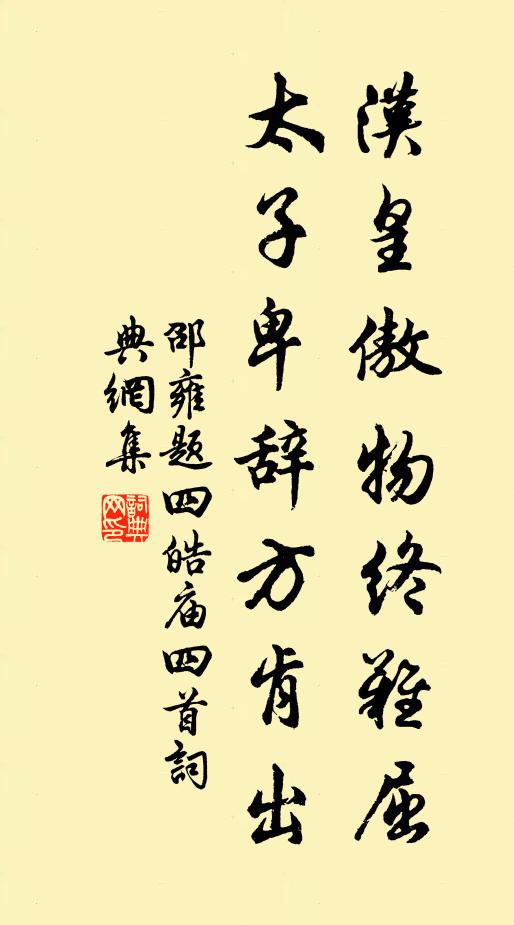 漢皇傲物終難屈
太子卑辞方肯出
邵雍题四皓庙四首詞
典網集
詞典网印